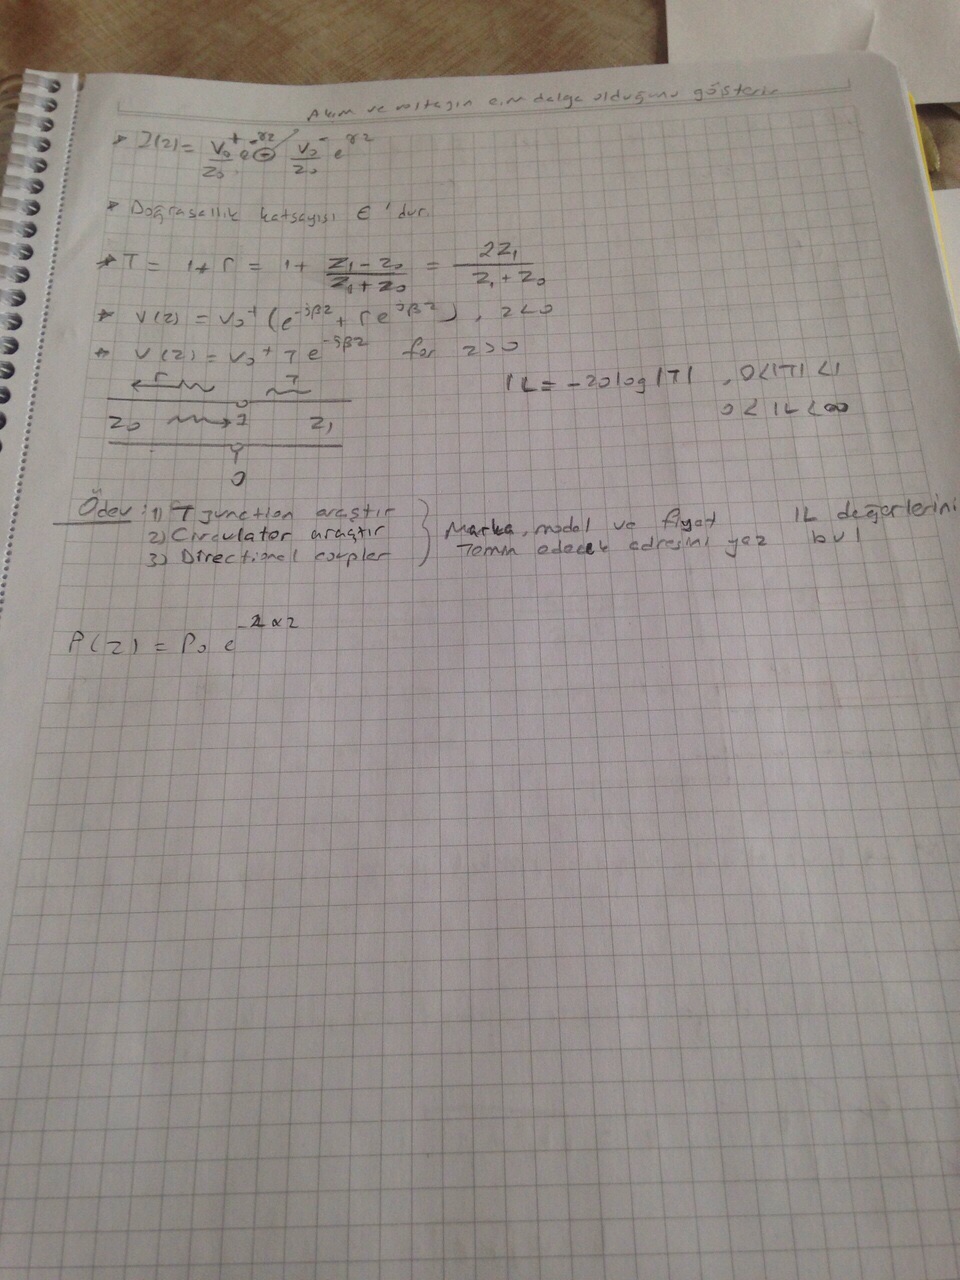 Akım ve voltajın dalga olduğunu gösterir
* I(z) = V₀⁺/Z₀ e^-γz ⊖ V₀⁻/Z₀ e^γz
* Doğrusallık katsayısı ϵ 'dur.
* T = 1+Γ = 1 + (Z₁ - Z₀)/(Z₁ + Z₀) = 2Z₁/(Z₁ + Z₀)
* V(z) = V₀⁺ (e^-jβz + Γe^jβz), z<0
* V(z) = V₀⁺ T e^-jβz for z>0
IL = -20log|T| , 0<|T|<1
0 < IL < ∞
Γ T
Z₀ Z₁
0
Ödev : 1) T junction araştır
2) Circulator araştır
3) Directional coupler
Marka, model ve fiyat IL değerlerini
Temin edecek adresini yaz bul
P(z) = P₀ e^-2αz